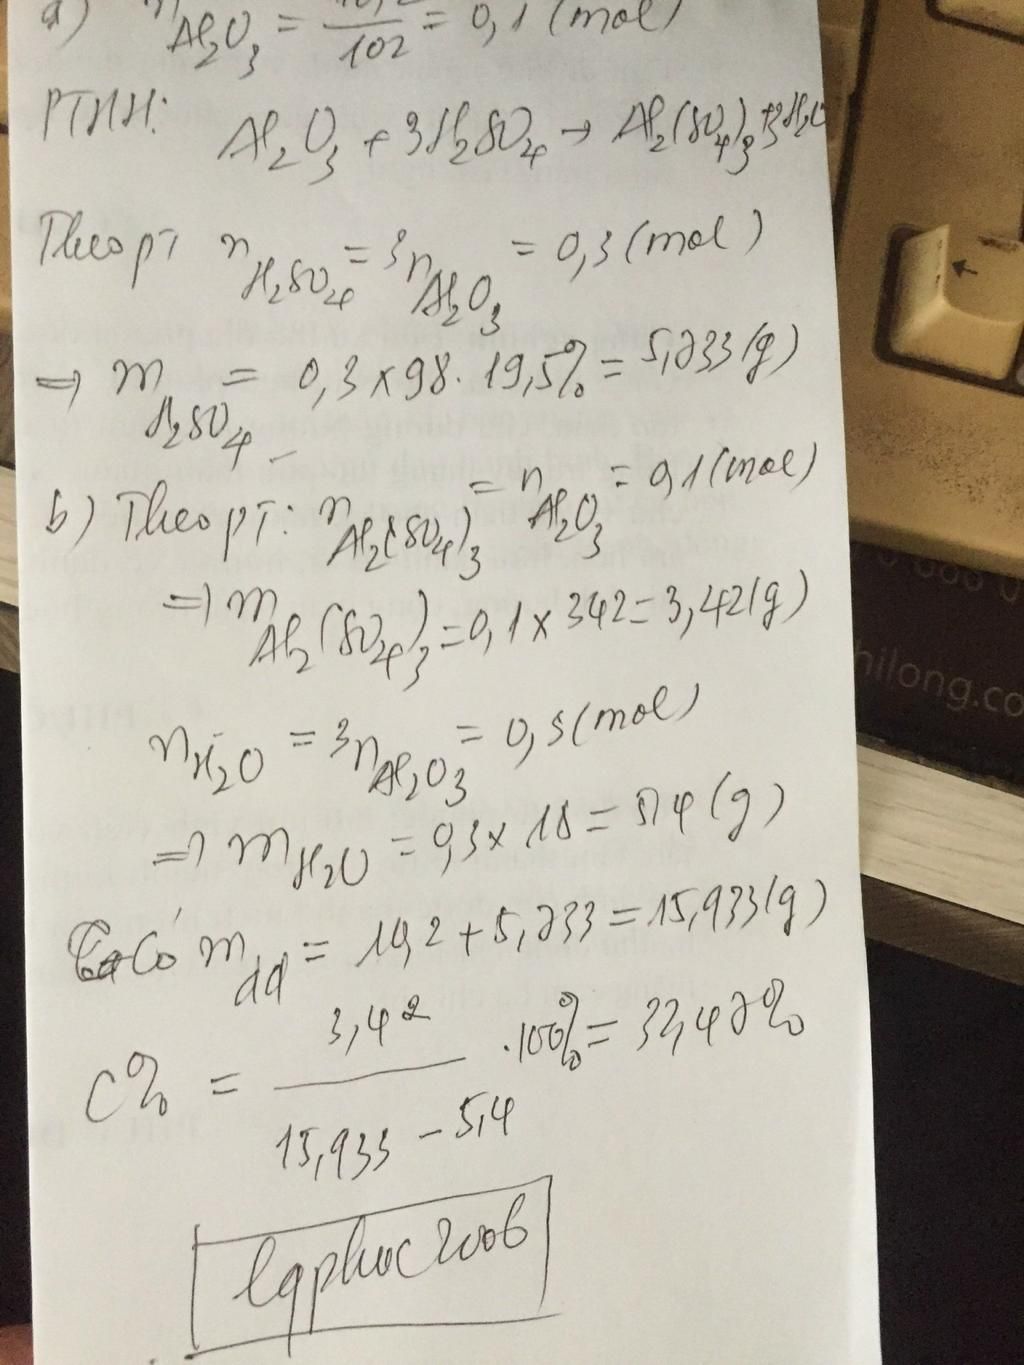 a) nAl2O3 = 10,2/102 = 0,1 (mol)
PTHH: Al2O3 + 3H2SO4 → Al2(SO4)3 + 3H2O
Theo pt nH2SO4 = 3nAl2O3 = 0,3 (mol)
=> mH2SO4 = 0,3 x 98 . 19,5% = 5,733 (g)
b) Theo pT: nAl2(SO4)3 = nAl2O3 = 0,1 (mol)
=> mAl2(SO4)3 = 0,1 x 342 = 3,42 (g)
nH2O = 3nAl2O3 = 0,3 (mol)
=> mH2O = 0,3 x 18 = 5,4 (g)
Ta Có mdd = 10,2 + 5,733 = 15,933 (g)
C% = 3,42 / 15,933 - 5,4 . 100% = 32,47%
lqphuc2006
hilong.co